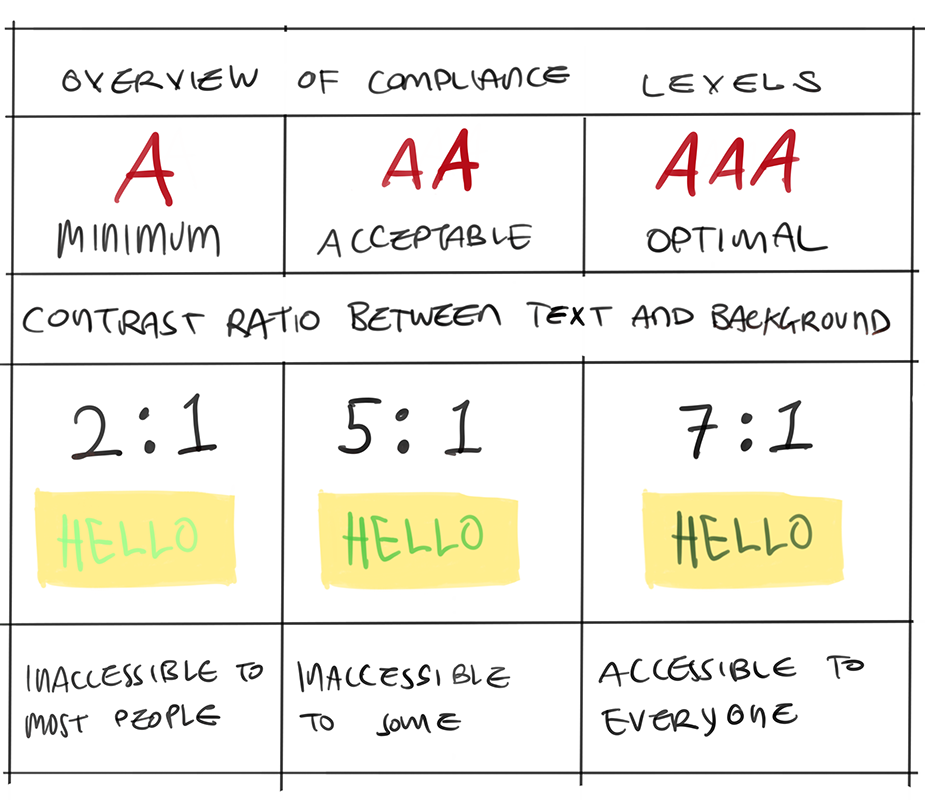 OVERVIEW OF COMPLIANCE LEVELS
A
MINIMUM
AA
ACCEPTABLE
AAA
OPTIMAL
CONTRAST RATIO BETWEEN TEXT AND BACKGROUND
2:1
HELLO
5:1
HELLO
7:1
HELLO
INACCESSIBLE TO
MOST PEOPLE
INACCESSIBLE
TO SOME
ACCESSIBLE TO
EVERYONE